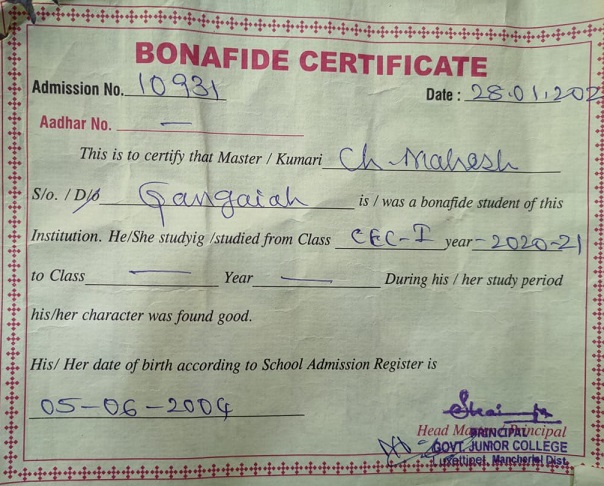 BONAFIDE CERTIFICATE
Admission No. 10931 Date : 28.01.202
Aadhar No. —
This is to certify that Master / Kumari Ch. Mahesh
S/o. / D/o Gangaiah is / was a bonafide student of this
Institution. He/She studyig /studied from Class CEC-I year - 2020-21
to Class — Year — During his / her study period
his/her character was found good.
His/ Her date of birth according to School Admission Register is
05-06-2004
Head Master / Principal
PRINCIPAL
GOVT. JUNIOR COLLEGE
Luxettipet, Mancherial Dist.